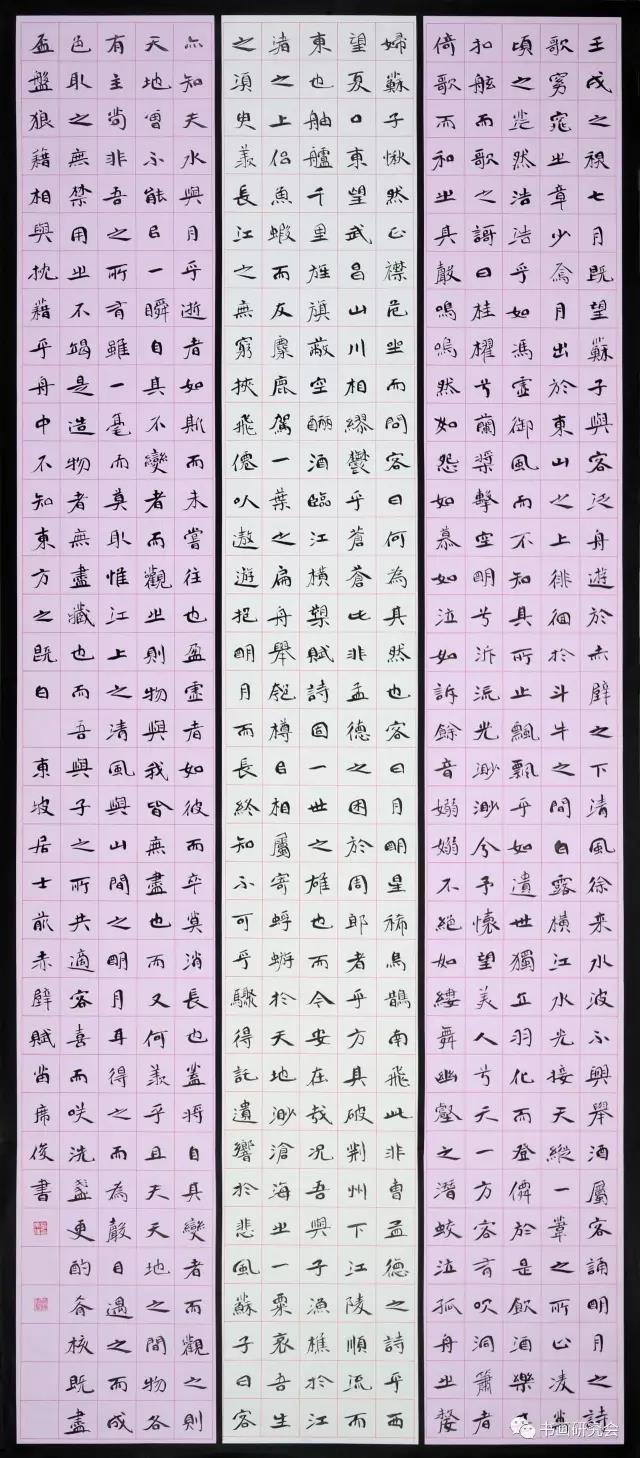 壬戌之秋七月既望蘇子與客泛舟遊於赤壁之下清風徐來水波不興舉酒屬客誦明月之詩
歌窈窕之章少焉月出於東山之上徘徊於斗牛之間白露橫江水光接天縱一葦之所止凌萬
頃之茫然浩浩乎如馮虛御風而不知其所止飄飄乎如遺世獨立羽化而登僊於是飲酒樂甚
扣舷而歌之謌曰桂櫂兮蘭槳擊空明兮泝流光渺渺兮予懷望美人兮天一方客有吹洞簫者
倚歌而和之其聲嗚嗚然如怨如慕如泣如訴餘音嫋嫋不絕如縷舞幽壑之潛蛟泣孤舟之嫠
婦蘇子愀然正襟危坐而問客曰何為其然也客曰月明星稀烏鵲南飛此非曹孟德之詩乎西
望夏口東望武昌山川相繆鬱乎蒼蒼此非孟德之困於周郎者乎方其破荊州下江陵順流而
東也舳艫千里旌旗蔽空釃酒臨江橫槊賦詩固一世之雄也而今安在哉況吾與子漁樵於江
渚之上侶魚蝦而友麋鹿駕一葉之扁舟舉匏樽以相屬寄蜉蝣於天地渺滄海之一粟哀吾生
之須臾羨長江之無窮挾飛僊以遨遊抱明月而長終知不可乎驟得託遺響於悲風蘇子曰客
亦知夫水與月乎逝者如斯而未嘗往也盈虛者如彼而卒莫消長也蓋將自其變者而觀之則
天地曾不能以一瞬自其不變者而觀之則物與我皆無盡也而又何羨乎且夫天地之間物各
有主苟非吾之所有雖一毫而莫取惟江上之清風與山間之明月耳得之而為聲目遇之而成
色取之無禁用之不竭是造物者無盡藏也而吾與子之所共適客喜而咲洗盞更酌肴核既盡
盃盤狼藉相與枕藉乎舟中不知東方之既白 東坡居士前赤壁賦 席俊書
书画研究会